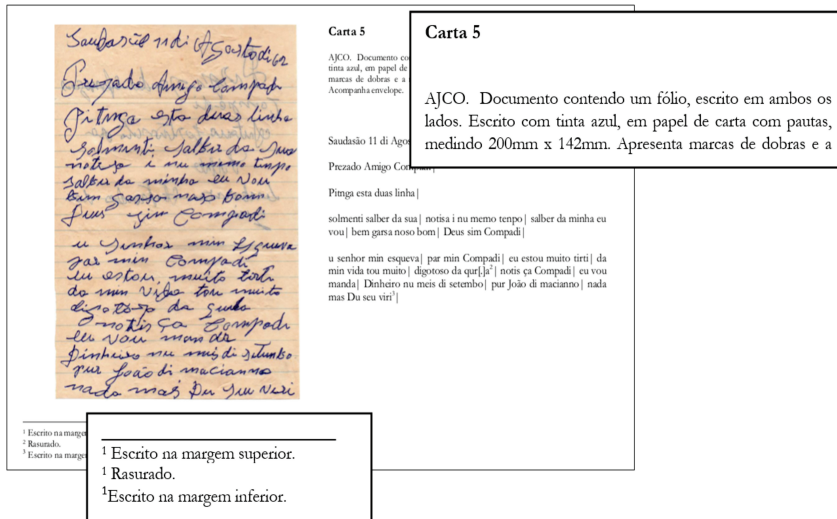 Saudasãe 11 di Agosto di 62
Prezado Amigo Compadi
Pitnga esta duas linha
solmenti salber da sua
notisa i nu memo tenpo
salber da minha eu vou
bem garsa noso bom
Deus sim Compadi
u senhor min esqueva
par min Compadi
eu estou muito tirti
da min vida tou muito
digotoso da
notis ça Compadi
eu vou manda
Dinheiro nu meis di setembo
pur João di macianno
nada mas Du seu viri
Carta 5
AJCO. Documento co
tinta azul, em papel de
marcas de dobras e a
Acompanha envelope.
Saudasão 11 di Agos
Prezado Amigo Com
Pitnga esta duas linha|
solmenti salber da sua| notisa i nu memo tenpo| salber da minha eu
vou| bem garsa noso bom| Deus sim Compadi|
u senhor min esqueva| par min Compadi| eu estou muito tirti| da
min vida tou muito| digotoso da qur[.]a²| notis ça Compadi| eu vou
manda| Dinheiro nu meis di setembo| pur João di macianno| nada
mas Du seu viri³|
Carta 5
AJCO. Documento contendo um fólio, escrito em ambos os
lados. Escrito com tinta azul, em papel de carta com pautas,
medindo 200mm x 142mm. Apresenta marcas de dobras e a
¹ Escrito na margem
² Rasurado.
³ Escrito na margem
¹ Escrito na margem superior.
¹ Rasurado.
¹Escrito na margem inferior.